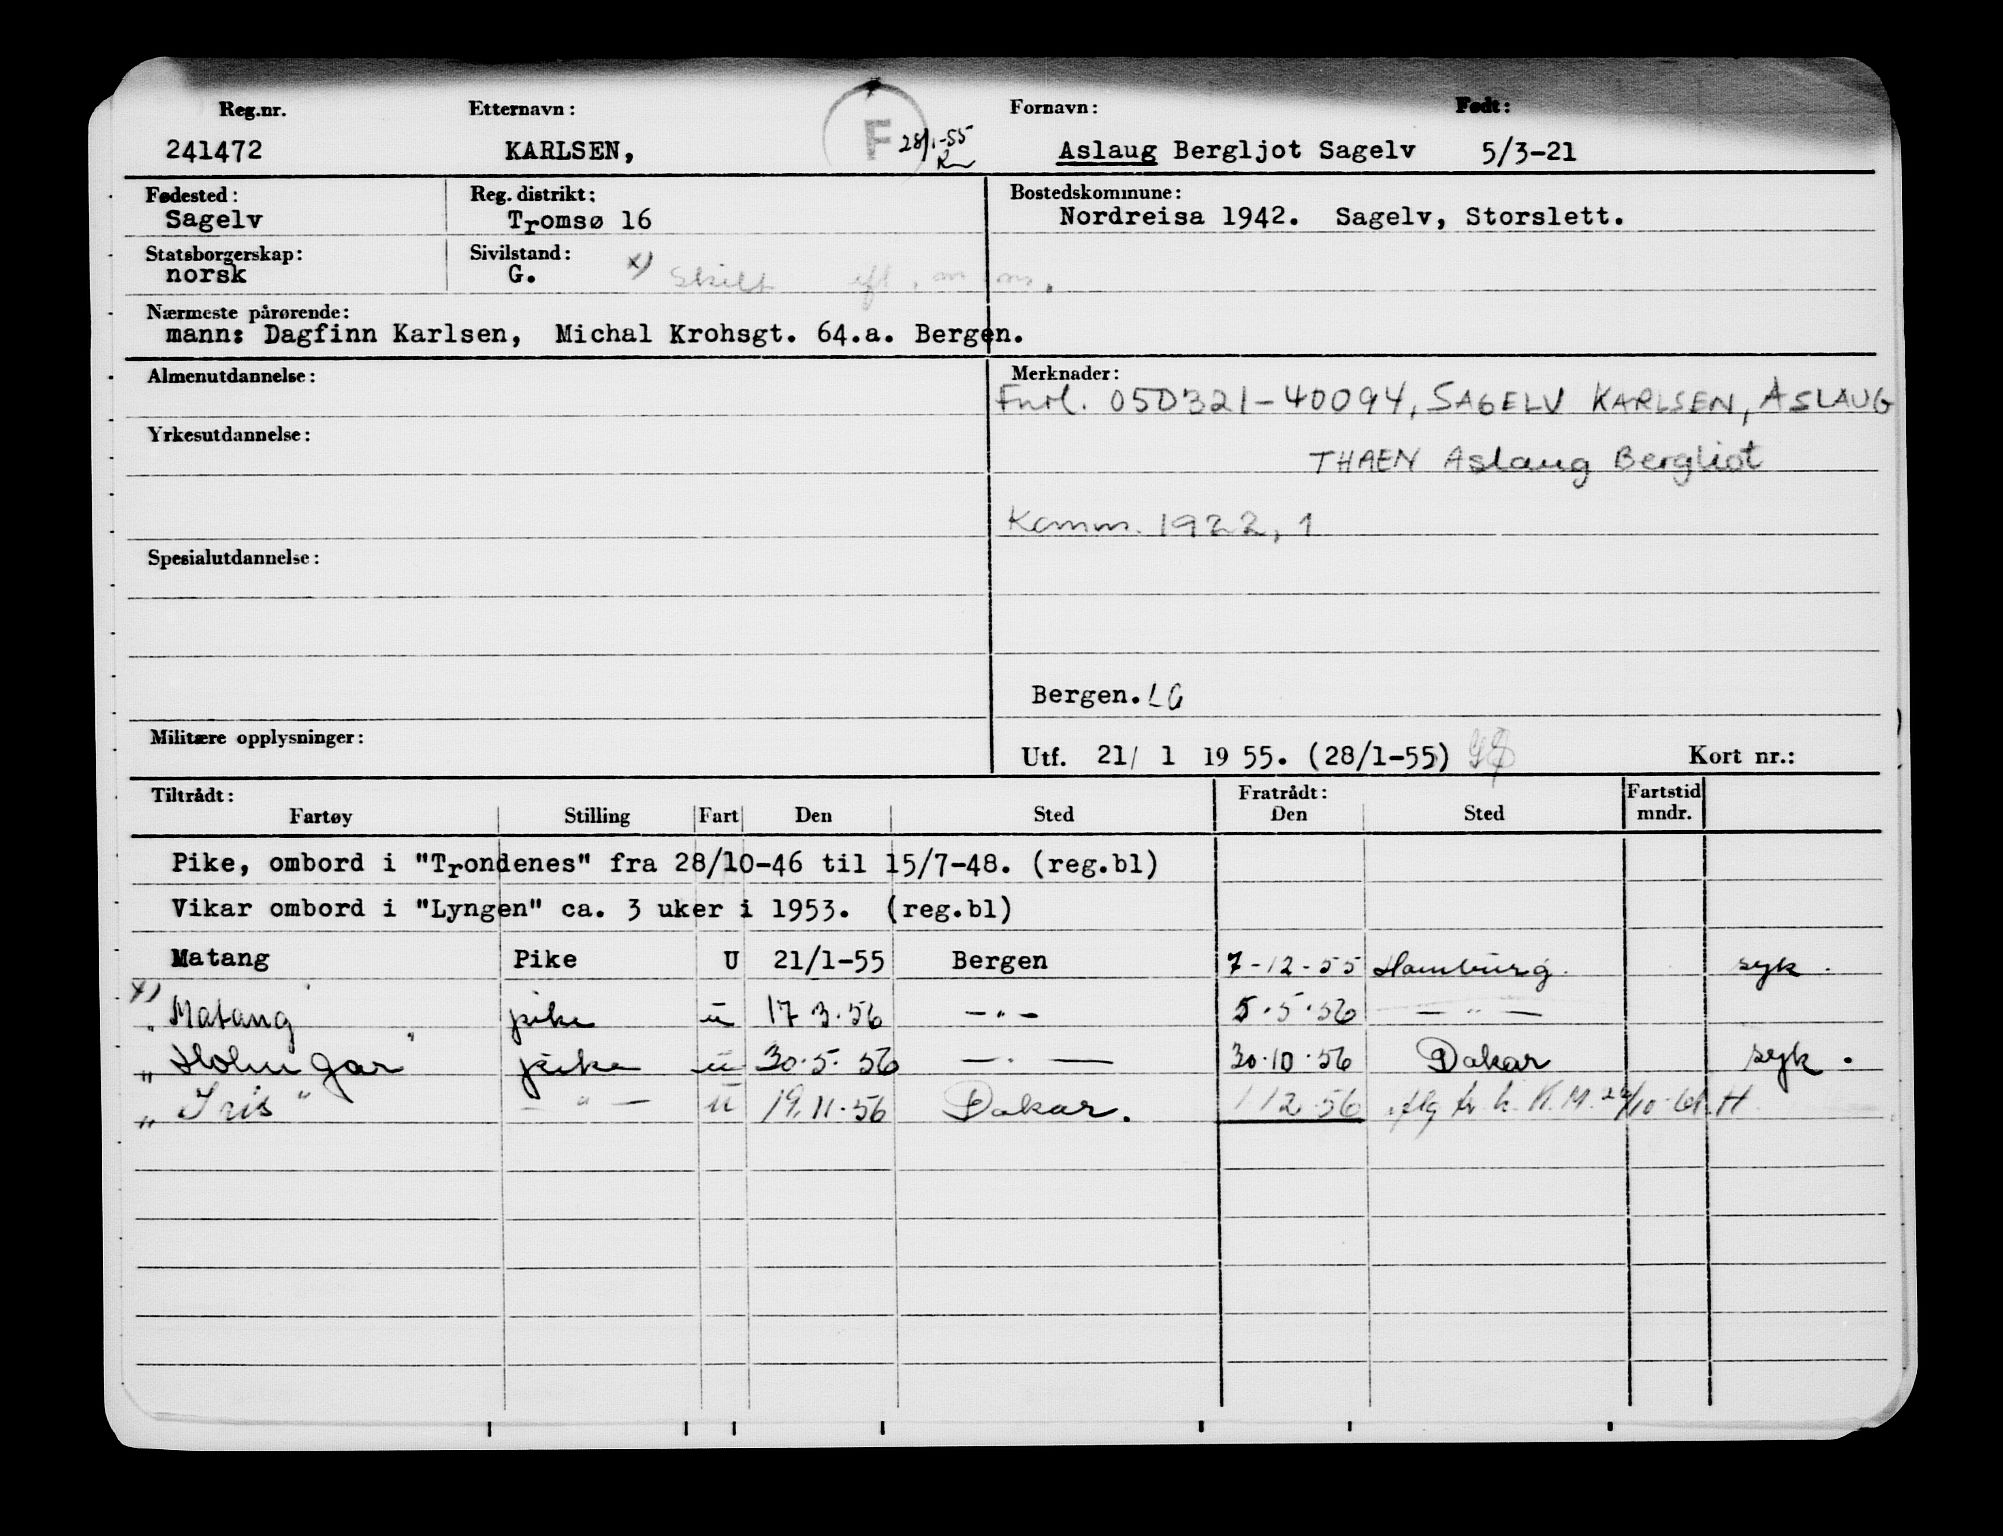 Reg.nr. Etternavn: Fornavn: Født:
241472 KARLSEN, F 28/1-55 Aslaug Bergljot Sagelv 5/3-21
Fødested: Reg. distrikt: Bostedskommune:
Sagelv Tromsø 16 Nordreisa 1942. Sagelv, Storslett.
Statsborgerskap: Sivilstand:
norsk G. x) Skilt efl. m m.
Nærmeste pårørende:
mann: Dagfinn Karlsen, Michal Krohsgt. 64.a. Bergen.
Almenutdannelse: Merknader:
Fnrl. 050321-40094, SAGELV KARLSEN, ASLAUG
Yrkesutdannelse:
THAEN Aslaug Bergliot
Komm. 1922, 1
Spesialutdannelse:
Bergen. LG
Militære opplysninger:
Utf. 21/ 1 1955. (28/1-55) Kort nr.:
Tiltrådt: Fratrådt: Fartstid
Fartøy Stilling Fart Den Sted Den Sted mndr.
Pike, ombord i "Trondenes" fra 28/10-46 til 15/7-48. (reg.bl)
Vikar ombord i "Lyngen" ca. 3 uker i 1953. (reg.bl)
Matang Pike U 21/1-55 Bergen 7-12-55 Hamburg. syk.
x) „ Matang " pike u 17 3.56 — " — 5.5.56 — " —
„ Holmgar " pike u 30.5.56 — " — 30.10.56 Dakar syk.
„ Iris " — " — u 19.11.56 Dakar. 1 12 56